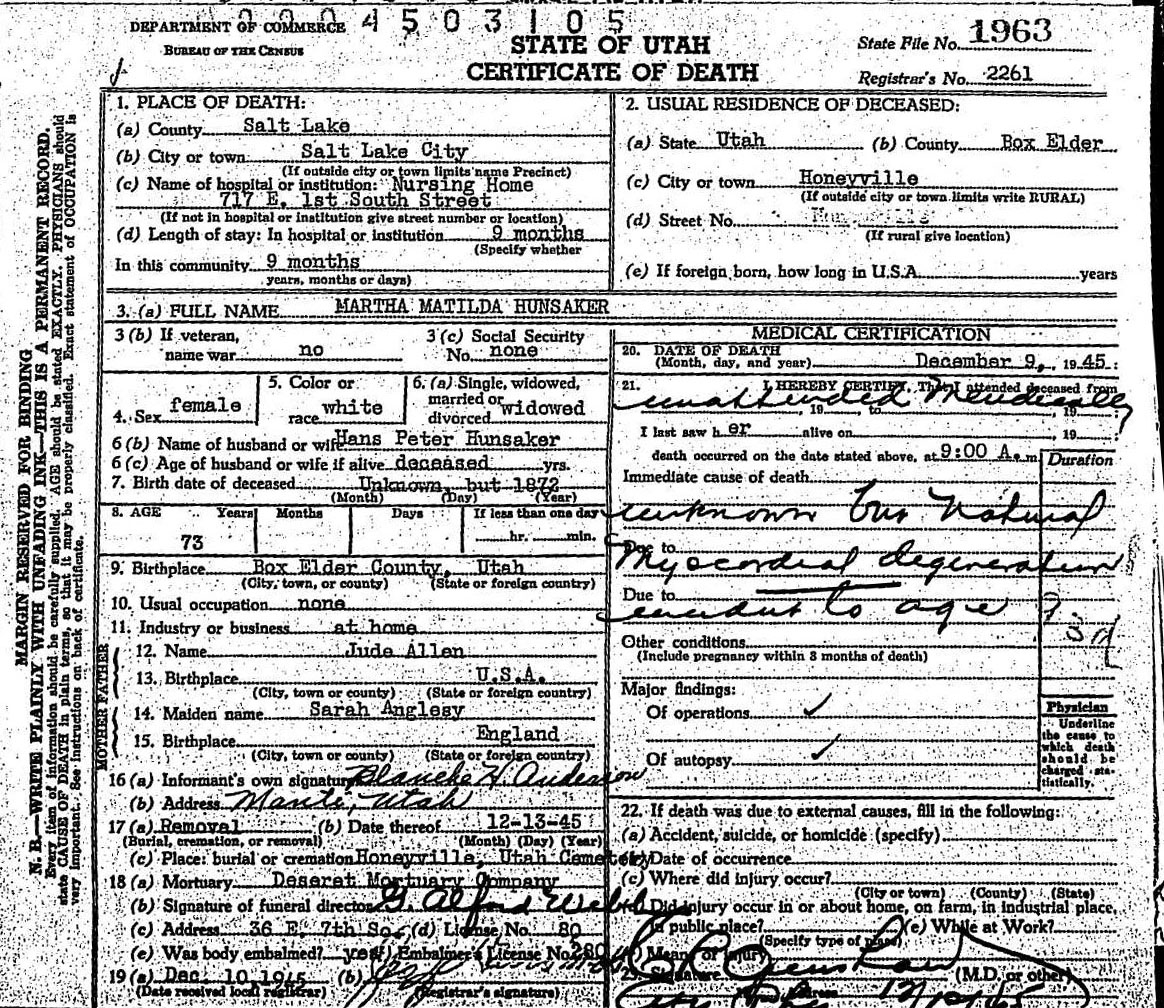 0004503105
DEPARTMENT OF COMMERCE
BUREAU OF THE CENSUS
STATE OF UTAH
CERTIFICATE OF DEATH
State File No. 1963
Registrar's No. 2261
MARGIN RESERVED FOR BINDING
N. B.—WRITE PLAINLY WITH UNFADING INK—THIS IS A PERMANENT RECORD.
Every item of information should be carefully supplied. AGE should be stated EXACTLY. PHYSICIANS should
state CAUSE OF DEATH in plain terms, so that it may be properly classified. Exact statement of OCCUPATION is
very important. See instructions on back of certificate.
1. PLACE OF DEATH:
(a) County Salt Lake
(b) City or town Salt Lake City
(If outside city or town limits name Precinct)
(c) Name of hospital or institution: Nursing Home
717 E. 1st South Street
(If not in hospital or institution give street number or location)
(d) Length of stay: In hospital or institution 9 months
(Specify whether
In this community 9 months
years, months or days)
2. USUAL RESIDENCE OF DECEASED:
(a) State Utah (b) County Box Elder
(c) City or town Honeyville
(If outside city or town limits write RURAL)
(d) Street No.
(If rural give location)
(e) If foreign born, how long in U.S.A. years
3. (a) FULL NAME MARTHA MATILDA HUNSAKER
3 (b) If veteran,
name war no
3 (c) Social Security
No. none
4. Sex female
5. Color or
race white
6. (a) Single, widowed,
married or
divorced widowed
6 (b) Name of husband or wife Hans Peter Hunsaker
6 (c) Age of husband or wife if alive deceased yrs.
7. Birth date of deceased Unknown, but 1872
(Month) (Day) (Year)
8. AGE Years Months Days If less than one day
73 hr. min.
9. Birthplace Box Elder County, Utah
(City, town, or county) (State or foreign country)
10. Usual occupation none
11. Industry or business at home
FATHER
12. Name Jude Allen
13. Birthplace U.S.A.
(City, town or county) (State or foreign country)
MOTHER
14. Maiden name Sarah Anglesy
15. Birthplace England
(City, town or county) (State or foreign country)
16 (a) Informant's own signature Blanche H Anderson
(b) Address Manti, Utah
17 (a) Removal (b) Date thereof 12-13-45
(Burial, cremation, or removal) (Month) (Day) (Year)
(c) Place: burial or cremation Honeyville, Utah Cemetery
18 (a) Mortuary Deseret Mortuary Company
(b) Signature of funeral director G. Alford
(c) Address 36 E. 7th So. (d) License No. 80
(e) Was body embalmed? yes Embalmer's License No.
19 (a) Dec. 10 1945 (b)
(Date received local registrar) (Registrar's signature)
MEDICAL CERTIFICATION
20. DATE OF DEATH
(Month, day, and year) December 9, 1945
21. I HEREBY CERTIFY, That I attended deceased from
unattended Medically
, 19 , to , 19
I last saw her alive on , 19
death occurred on the date stated above, at 9:00 A. m.
Duration
Immediate cause of death
unknown but Natural
Due to
Myocordial degeneration
Due to
to age ?
Other conditions
(Include pregnancy within 3 months of death)
Major findings:
Of operations ✓
Of autopsy ✓
Physician
Underline
the cause to
which death
should be
charged sta-
tistically.
22. If death was due to external causes, fill in the following:
(a) Accident, suicide, or homicide (specify)
(b) Date of occurrence
(c) Where did injury occur?
(City or town) (County) (State)
Did injury occur in or about home, on farm, in industrial place,
in public place? (e) While at Work?
(Specify type of place)
Means of injury
Signature (M.D. or other)